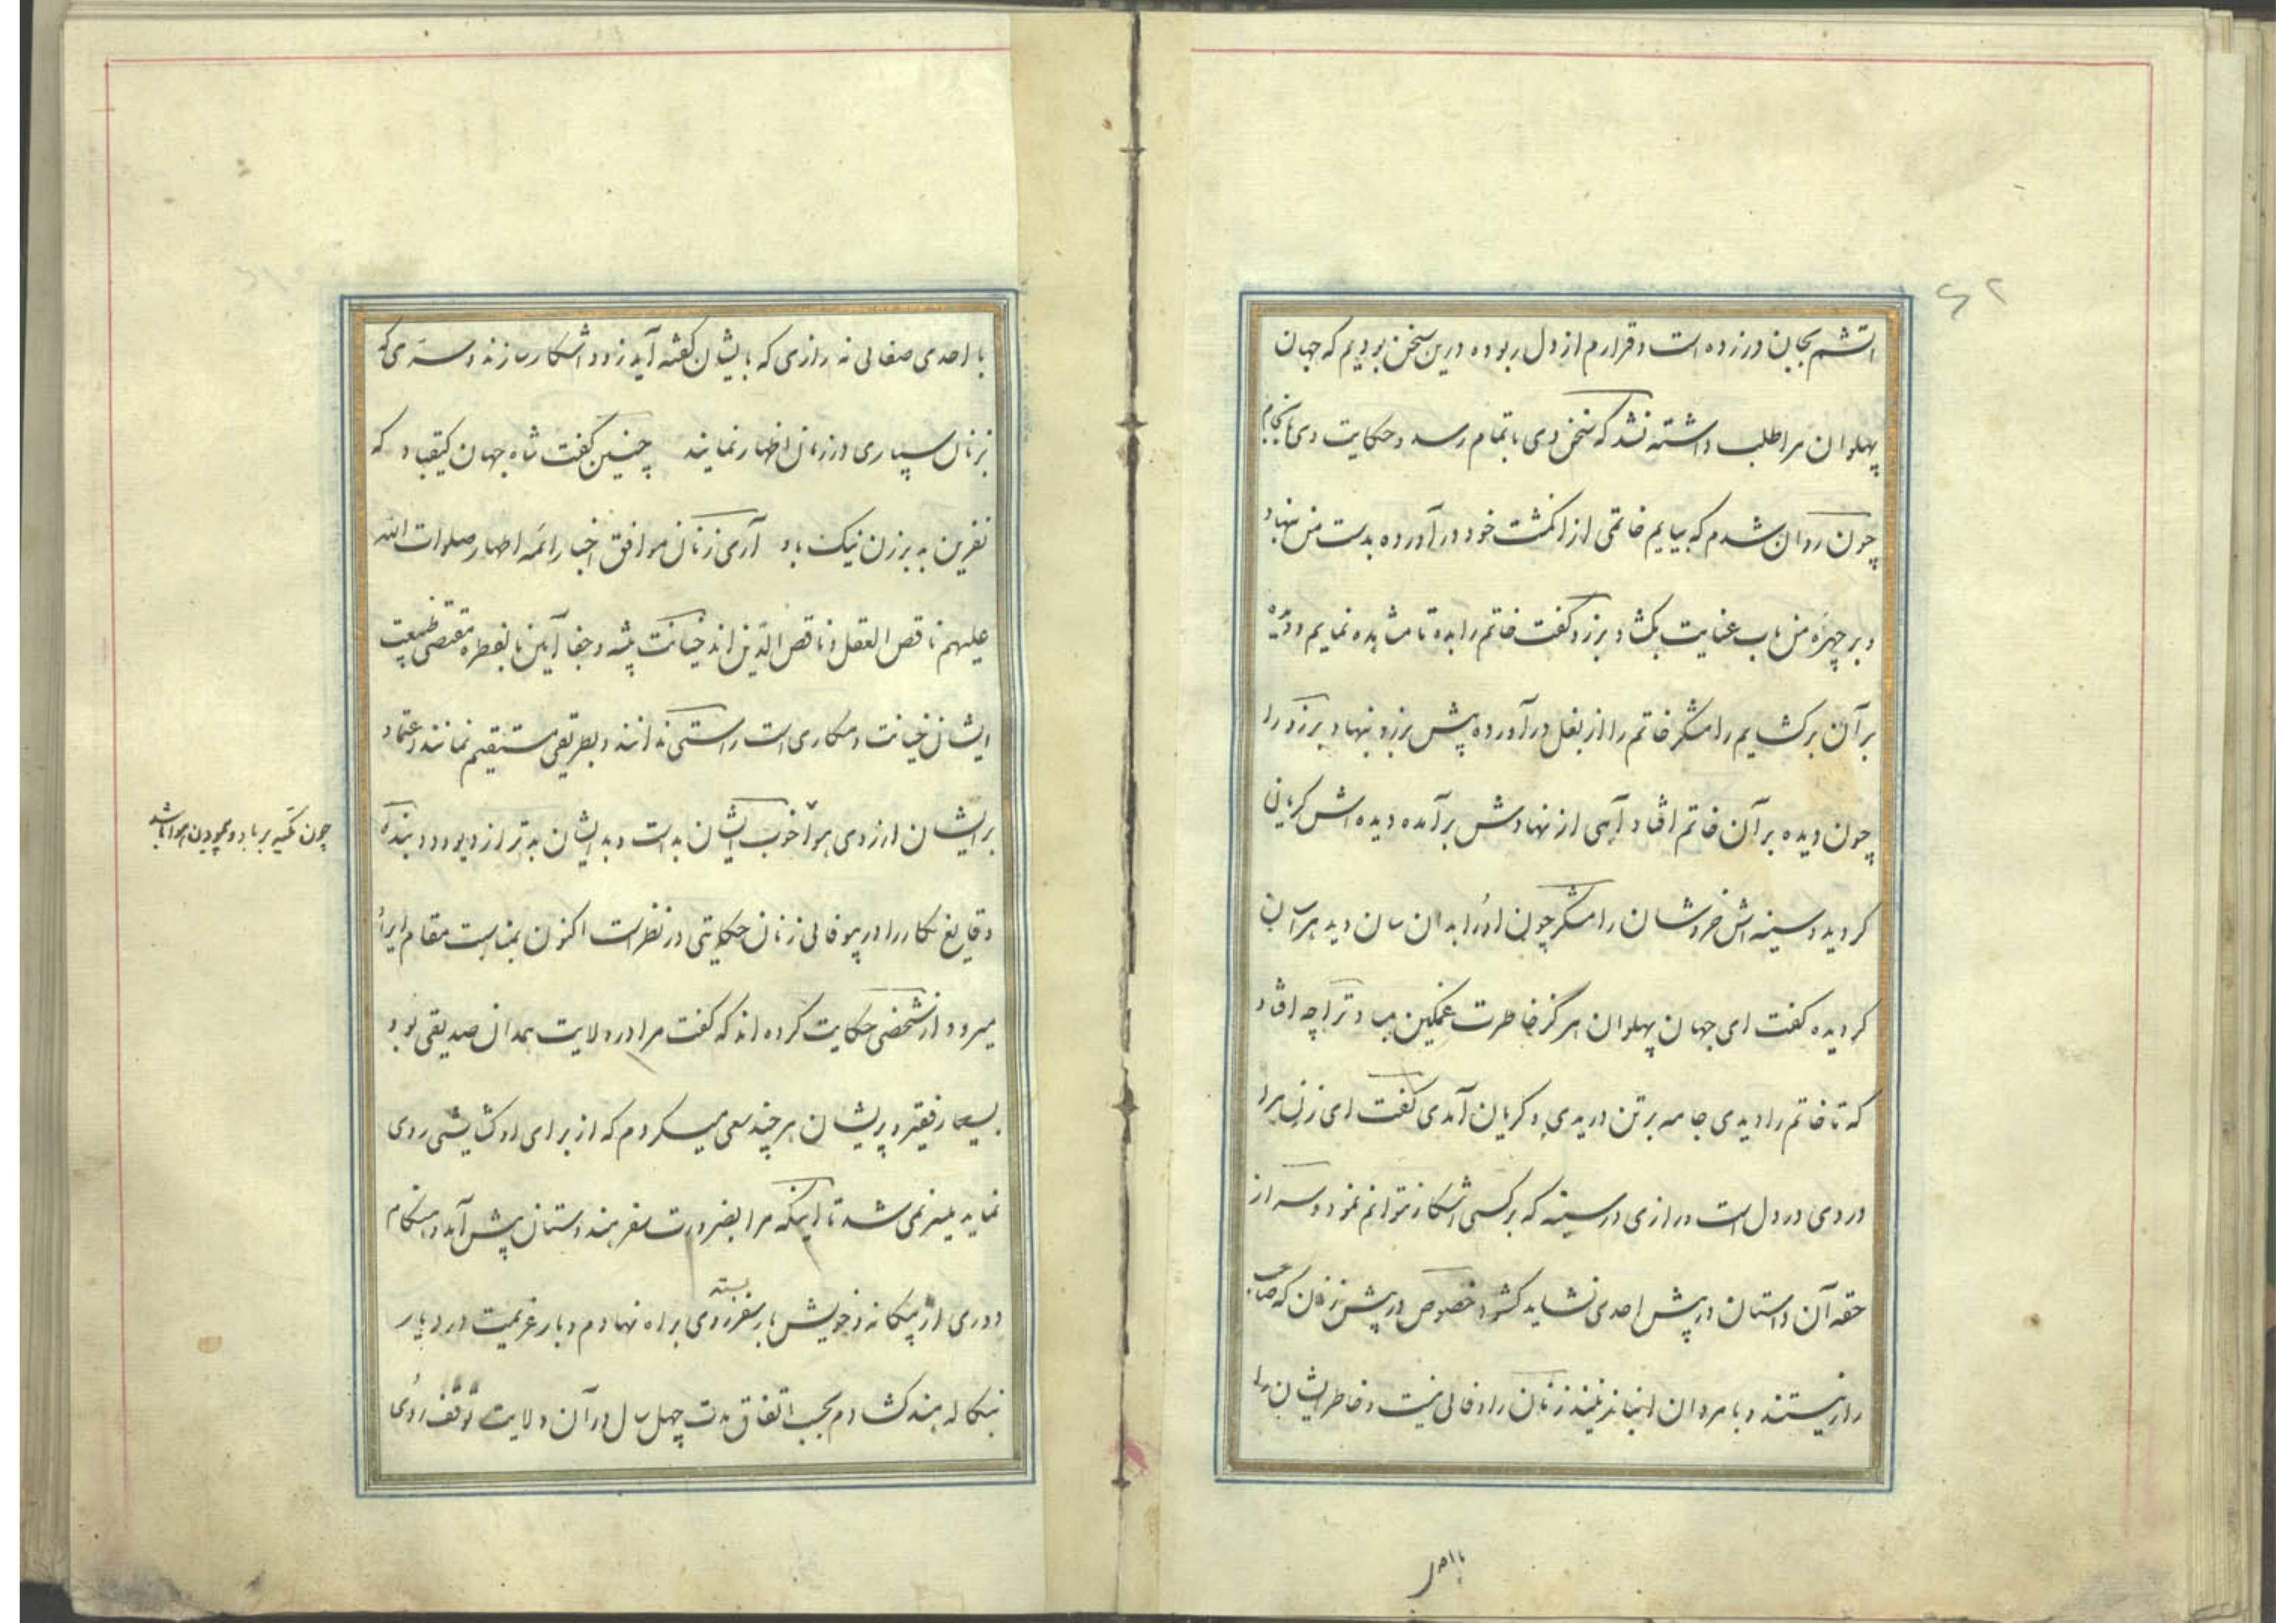 آتشم بجان درزده است و قرارم از دل ربوده درین سخن بودیم که جهان
پهلوان مرا طلب داشته نشد که سخن وی باتمام رسد و حکایت وی بانجام
چون روان شدم که بیایم خاتمی از انگشت خود در آورده بدست من نهاد
و بر چهره من باب عنایت بگشاد برزو گفت خاتم را بده تا مشاهده نمایم و دیده
بر آن برگشایم رامشگر خاتم را از بغل در آورده پیش برزو نهاد برزو را
چون دیده بر آن خاتم افتاد آهی از نهادش برآمده دیده اش گریان
گردید و سینه اش خروشان رامشگر چون او را بدان سان دید هراسان
گردیده گفت ای جهان پهلوان هرگز خاطرت غمگین مباد ترا چه افتاد
که تا خاتم را دیدی جامه بر تن دریدی و گریان آمدی گفت ای زن مرا
دردی در دل است و رازی در سینه که بر کسی آشکار نتوانم نمود و سر از
حقه آن داستان در پیش احدی نشاید گشود خصوص در پیش زنان که صاحب
راز نیستند و با مردان انباز نیند زنان را وفائی نیست و خاطر ایشان را
با احدی
با احدی صفائی نه رازی که با ایشان گفته آید زود آشکار سازند و سری که
بزنان سپاری در زمان اظهار نمایند چنین گفت شاه جهان کیقباد که
نفرین به بر زن نیک باد آری زنان موافق اخبار ائمه اطهار صلوات الله
علیهم ناقص العقل و ناقص الدین اند خیانت پیشه و جفا آیین بالفطره مقتضی طبیعت
ایشان خیانت و مکاری است راستی ندانند و بطریق مستقیم نمانند و اعتماد
بر ایشان از روی هوا خوب ایشان بد است و بد ایشان بدتر از دیو و دد بنده
چون تکیه بر باد و پیمودن هوا باشد
وقایع نگار را در بیوفائی زنان حکایتی در نظر است اکنون بمناسبت مقام ایراد
میرود از شخصی حکایت کرده اند که گفت مرا در ولایت همدان صدیقی بود
بسیار فقیر و پریشان هر چند سعی میکردم که از برای او گشایشی روی
نماید میسر نمی شد تا اینکه مرا بضرورت سفر هندوستان پیش آمد و هنگام
دوری از بیگانه و خویش بار سفر بسته روی براه نهادم و بار عزیمت در دیار
بنگاله هند گشادم بحسب اتفاق مدت چهل سال در آن ولایت توقف روی